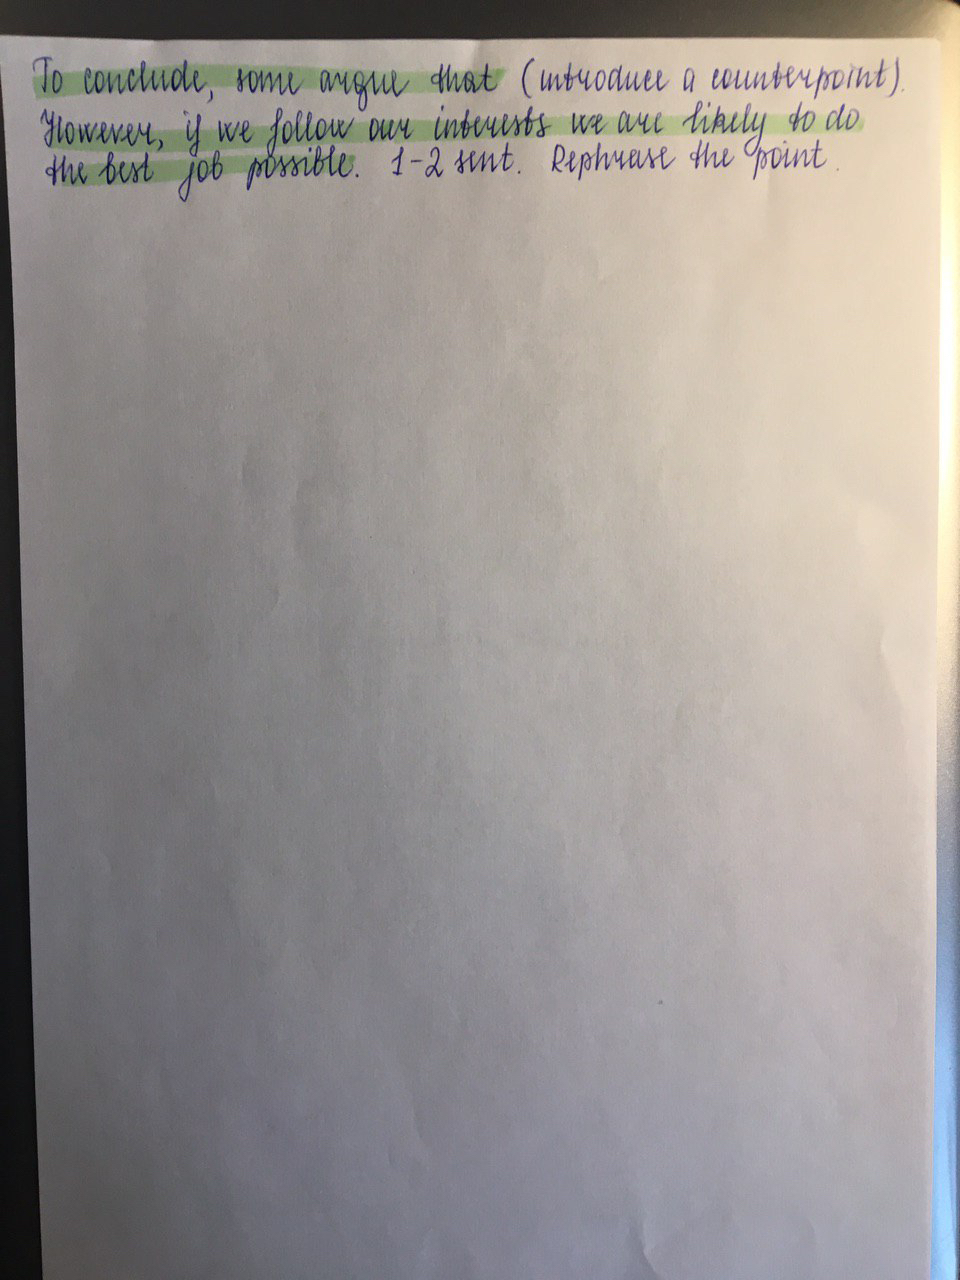 To conclude, some argue that (introduce a counterpoint).
However, if we follow our interests we are likely to do
the best job possible. 1-2 sent. Rephrase the point.